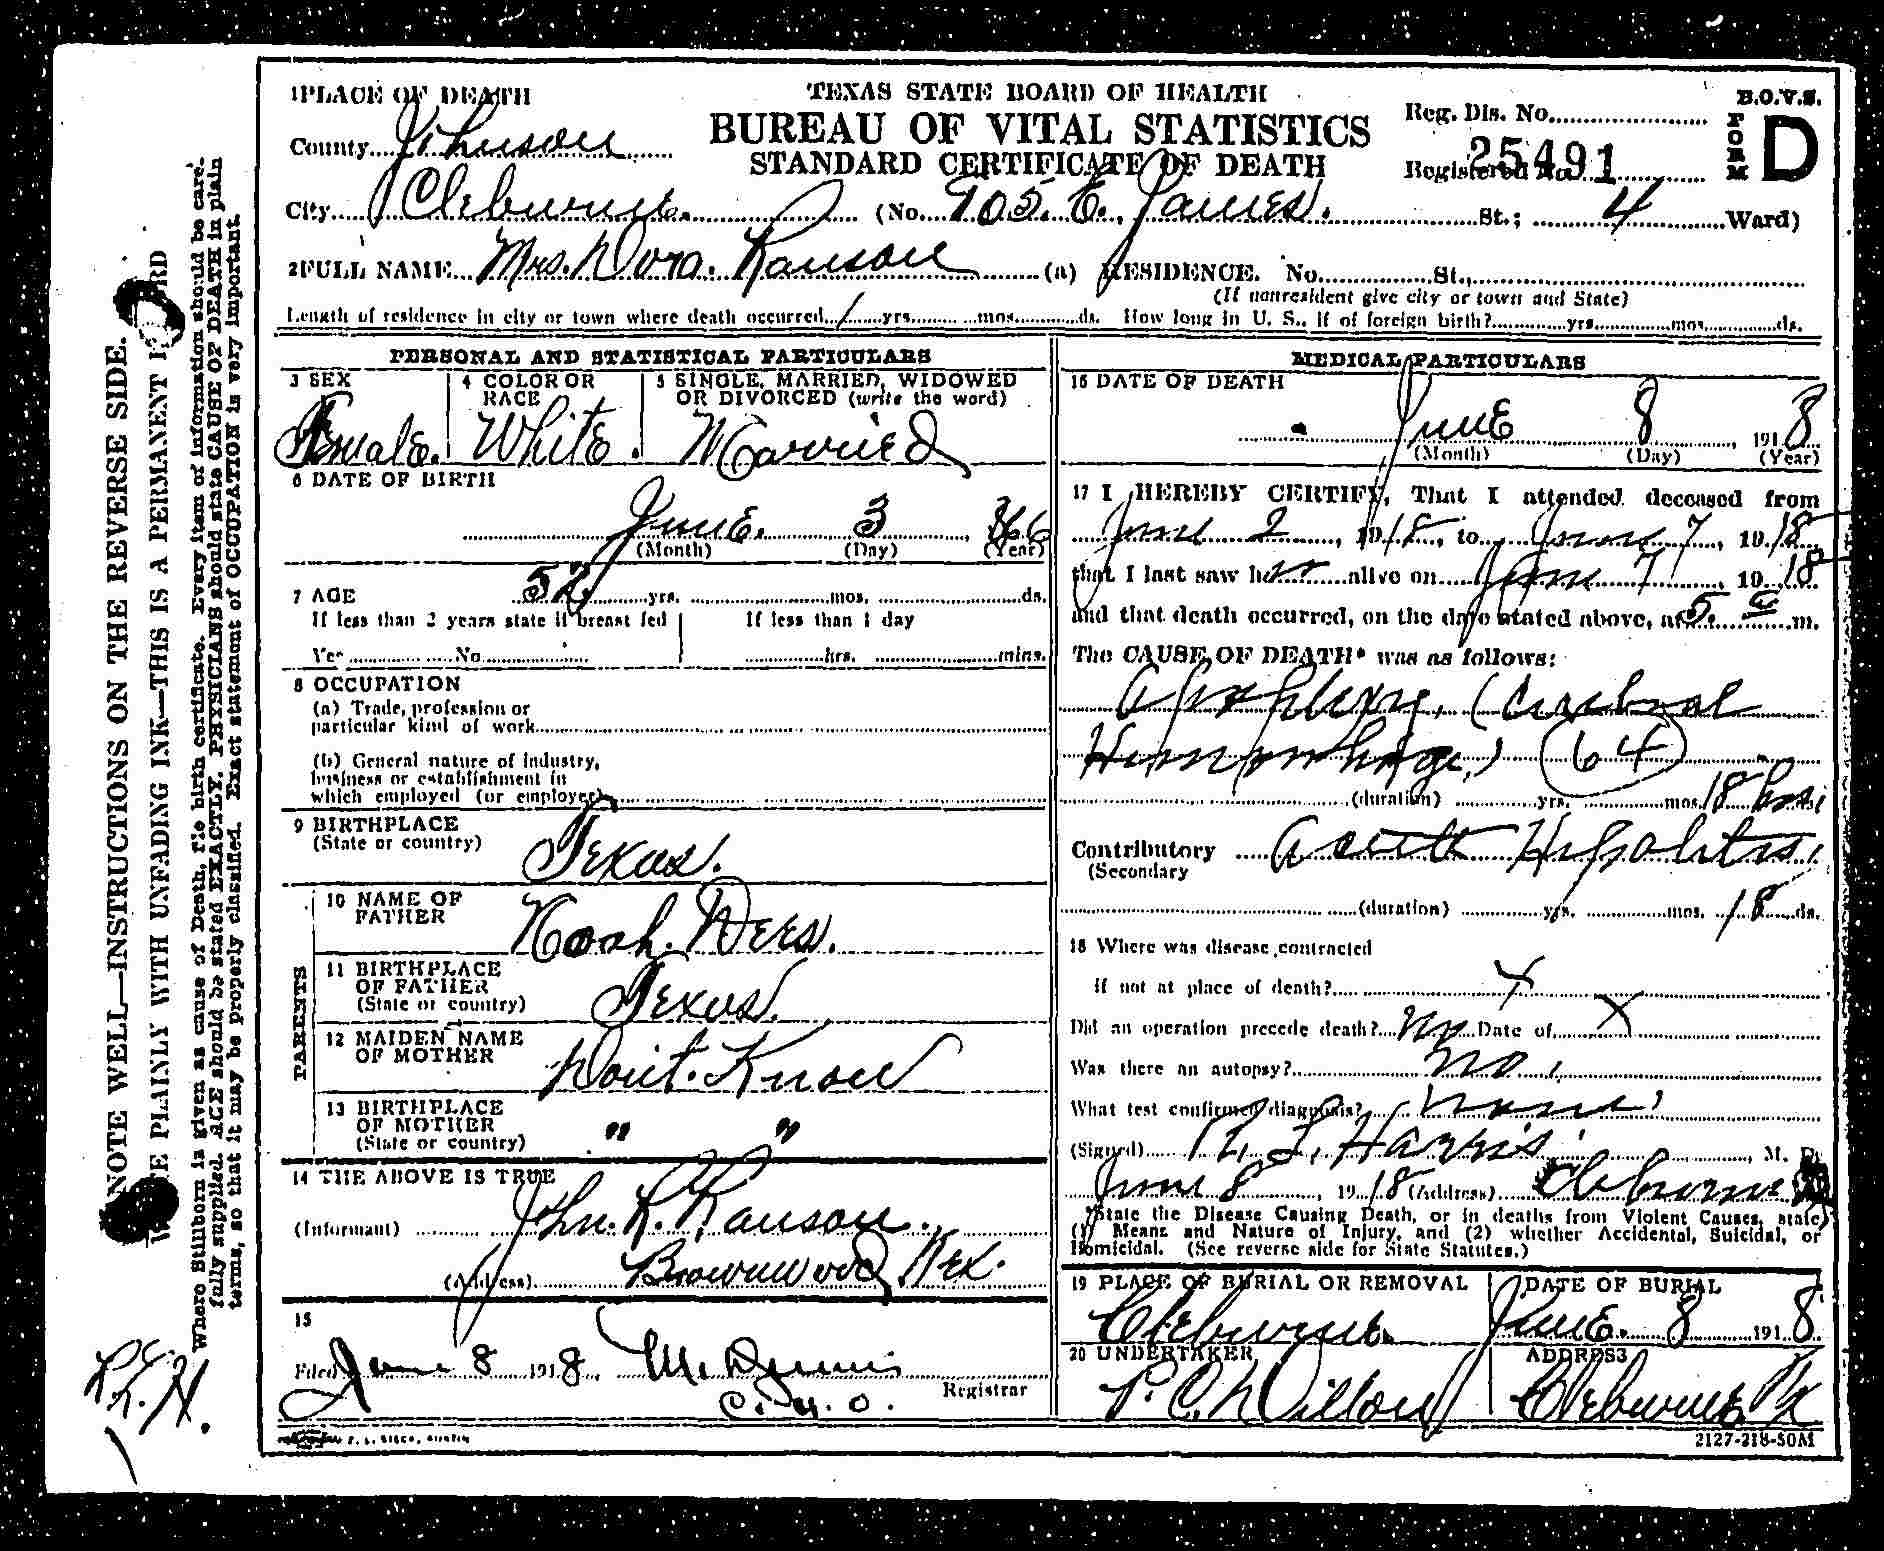 1 PLACE OF DEATH
TEXAS STATE BOARD OF HEALTH
BUREAU OF VITAL STATISTICS
STANDARD CERTIFICATE OF DEATH
B.O.V.S.
FORM D
Reg. Dis. No.
Registered No. 25491
County Johnson
City Cleburne. (No. 705. E. James. St.; 4 Ward)
2 FULL NAME Mrs. Dora. Ranson (a) RESIDENCE. No. St.,
(If nonresident give city or town and State)
Length of residence in city or town where death occurred 1 yrs. mos. ds. How long in U. S., if of foreign birth? yrs. mos. ds.
PERSONAL AND STATISTICAL PARTICULARS
3 SEX
Female.
4 COLOR OR RACE
White.
5 SINGLE, MARRIED, WIDOWED
OR DIVORCED (write the word)
Married
6 DATE OF BIRTH
June. 3, 66
(Month) (Day) (Year)
7 AGE 52 yrs. mos. ds.
If less than 2 years state if breast fed
Yes No
If less than 1 day
hrs. mins.
8 OCCUPATION
(a) Trade, profession or
particular kind of work
(b) General nature of industry,
business or establishment in
which employed (or employer)
9 BIRTHPLACE
(State or country)
Texas.
PARENTS
10 NAME OF
FATHER
Noah. Dees.
11 BIRTHPLACE
OF FATHER
(State or country)
Texas.
12 MAIDEN NAME
OF MOTHER
Dont. Know
13 BIRTHPLACE
OF MOTHER
(State or country)
" "
14 THE ABOVE IS TRUE
(Informant) Jhn. R. Ranson.
(Address) Brownwood Tex.
15
Filed June 8 1918, Registrar
MEDICAL PARTICULARS
16 DATE OF DEATH
June 8, 1918
(Month) (Day) (Year)
17 I HEREBY CERTIFY, That I attended deceased from
June 2, 1918, to June 7, 1918
that I last saw her alive on June 7, 1918
and that death occurred, on the date stated above, at 5. a m.
The CAUSE OF DEATH* was as follows:
Apoplexy, (Cerebral
Hemorrhage,) 64
(duration) yrs. mos. 18 hrs.
Contributory Acute
(Secondary
(duration) yrs. mos. 18 ds.
18 Where was disease contracted
if not at place of death? X
Did an operation precede death? No Date of X
Was there an autopsy? No,
What test confirmed diagnosis? None,
(Signed) Harris, M. D.
June 8, 1918 (Address) Cleburne
*State the Disease Causing Death, or in deaths from Violent Causes, state
(1) Means and Nature of Injury, and (2) whether Accidental, Suicidal, or
Homicidal. (See reverse side for State Statutes.)
19 PLACE OF BURIAL OR REMOVAL
Cleburne.
DATE OF BURIAL
June. 8 1918
20 UNDERTAKER
P. C. Dillon
ADDRESS
Cleburne Tx
2127-218-50M
NOTE WELL—INSTRUCTIONS ON THE REVERSE SIDE.
PLAINLY WITH UNFADING INK—THIS IS A PERMANENT
Where Stillborn is given as cause of Death, file birth certificate. Every item of information should be care-
fully supplied. AGE should be stated EXACTLY. PHYSICIANS should state CAUSE OF DEATH in plain
terms, so that it may be properly classified. Exact statement of OCCUPATION is very important.